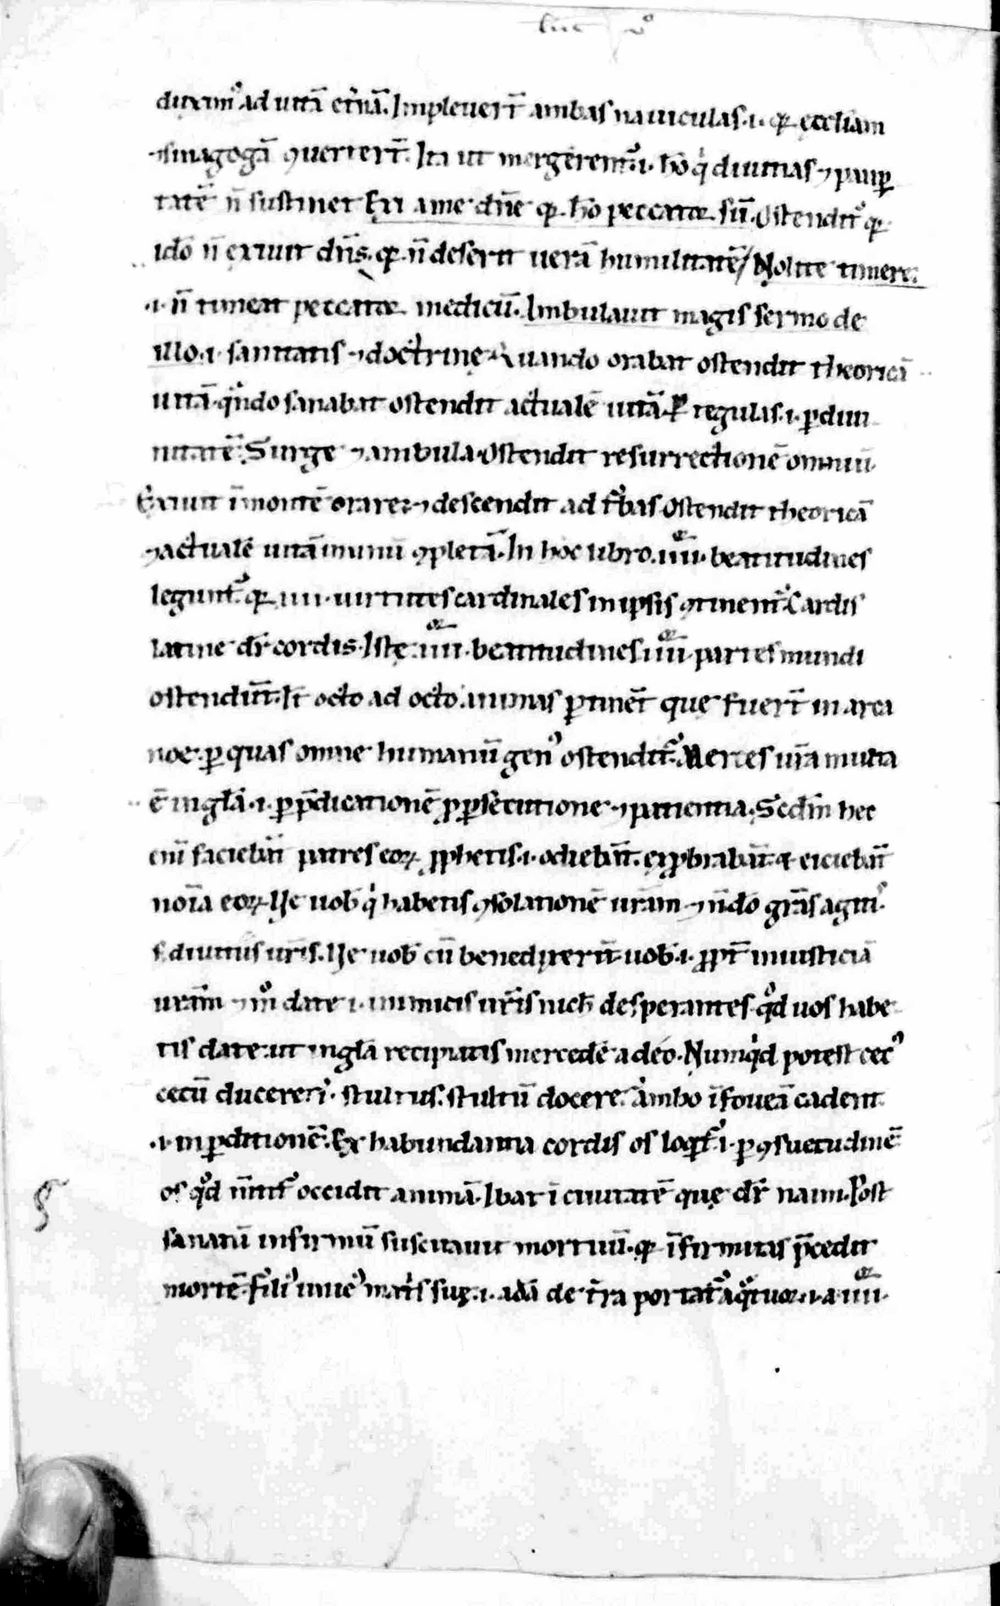 duxim᷒ ad uitā et̄nā. Impleuert̄ ambas nauiculas .i. qꝛ eccl̄iam
⁊ sinagogā ꝯuertert̄. Ita ut mergerent᷒ .i. hō q̇ diuitias ⁊ paup̲
tatē n̄ sustinet Exi a me dn̄e qꝛ hō peccatoꝛ sū. Ostendit᷒ qꝛ
idō n̄ exiuit dn̄s. qꝛ n̄ deserit uerā humilitatē / Nolite timere.
.i. n̄ timeat peccatoꝛ medicū. Ambulauit magis sermo de
illo .i. sanitatis ⁊ doctrinę. Quando orabat ostendit theoricā
uitā. qn̄do sanabat ostendit actualē uitā. ꝑ tegulas .i. ꝑ diui
nitatē. Surge ⁊ ambula. Ostendit resurrectionē omniū.
Exiuit ī montē orare. ⁊ descendit ad t̄bas Ostendit theoricā
⁊ actualē uitā. ꝯpletā. In hoc libro .iiii. beatitudines
legunt᷒. qꝛ .iiii. uirtutes cardinales in ipsis ꝯtinent᷒. Cardis
latine dr̄ cordis. Istę .iiii. beatitudines .iiii. partes mundi
ostendūt. octo ad octo animas ꝑtinēt que fuert̄ in arca
noe. ꝑ quas omne humanū gen᷒ ostendit᷒. Merces ur̄a multa
ē in gl̄a .i. ꝑ p̄dicatione ꝑ ꝑsecutione ⁊ patientia. Scdm̄ hec
eni faciebāt patres eoꝝ ꝓphetis .i. odiebāt. exꝓbrabāt. & eiciebāt
noīa eoꝝ. Ve uob̄ q̇ habetis ꝯsolationē ur̄am ⁊ n̄do gr̄as agit᷒.
s; diuitiis ur̄is. Ve uob̄ cū benedixerīt uob̄ .i. ꝓpt̄ iniusticiā
ur̄am date .i. inimicis ur̄is nich̄ desperantes. qd̄ uos habe
tis date. ut in gl̄a recipiatis mercedē a deo. Numq̇d potest cec᷒
cecū ducere .i. stultus. stultū docere. ambo ī foueā cadent.
.i. in ꝑditionē. Ex habundantia cordis os loqt᷒ .i. ꝑ ꝯsuetudinē
os qd̄ mentit᷒ occidit animā. Ibat ī ciuitatē quę dr̄ naim. Post
sanatū infirmū suscitauit mortuū. qꝛ īfirmitas p̄cedit
mortē. fili᷒ unic᷒ mat̄s suę .i. adā de t̄ra portat᷒ a q̇tuoꝛ .i. a .iiii.